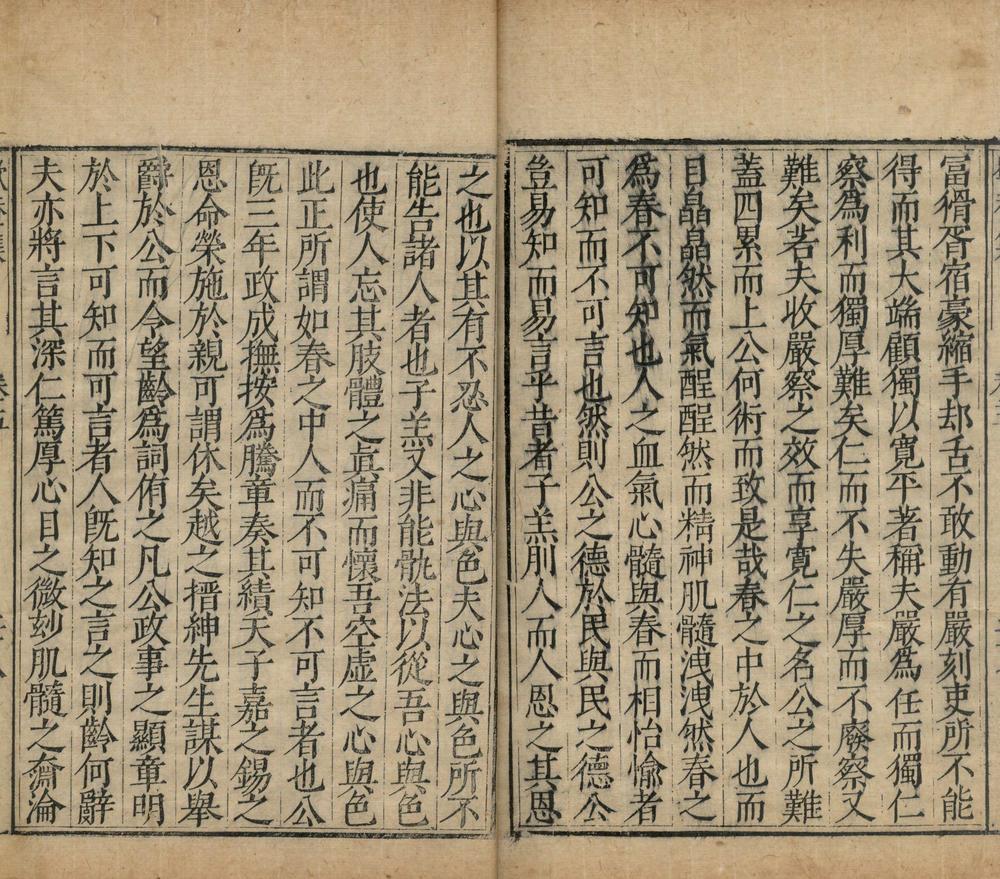 富猾胥宿豪縮手却舌不敢動有嚴刻吏所不能
得而其大端顧獨以寬平著稱夫嚴爲任而獨仁
察爲利而獨厚難矣仁而不失嚴厚而不廢察又
難矣若夫收嚴察之效而享寬仁之名公之所難
蓋四累而上公何術而致是哉春之中於人也而
目晶晶然而氣醒醒然而精神肌髓洩洩然春之
爲春不可知也人之血氣心髓與春而相怡愉者
可知而不可言也然則公之德於民與民之德公
豈易知而易言乎昔者子羔刖人而人恩之其恩
之也以其有不忍人之心與色夫心之與色所不
能告諸人者也子羔又非能骫法以從吾心與色
也使人忘其肢體之眞痛而懷吾空虛之心與色
此正所謂如春之中人而不可知不可言者也公
旣三年政成撫按爲騰章奏其績天子嘉之錫之
恩命榮施於親可謂休矣越之搢紳先生謀以舉
爵於公而令望齡爲詞侑之凡公政事之顯章明
於上下可知而可言者人旣知之言之則齡何辭
夫亦將言其深仁篤厚心目之微玅肌髓之奫淪